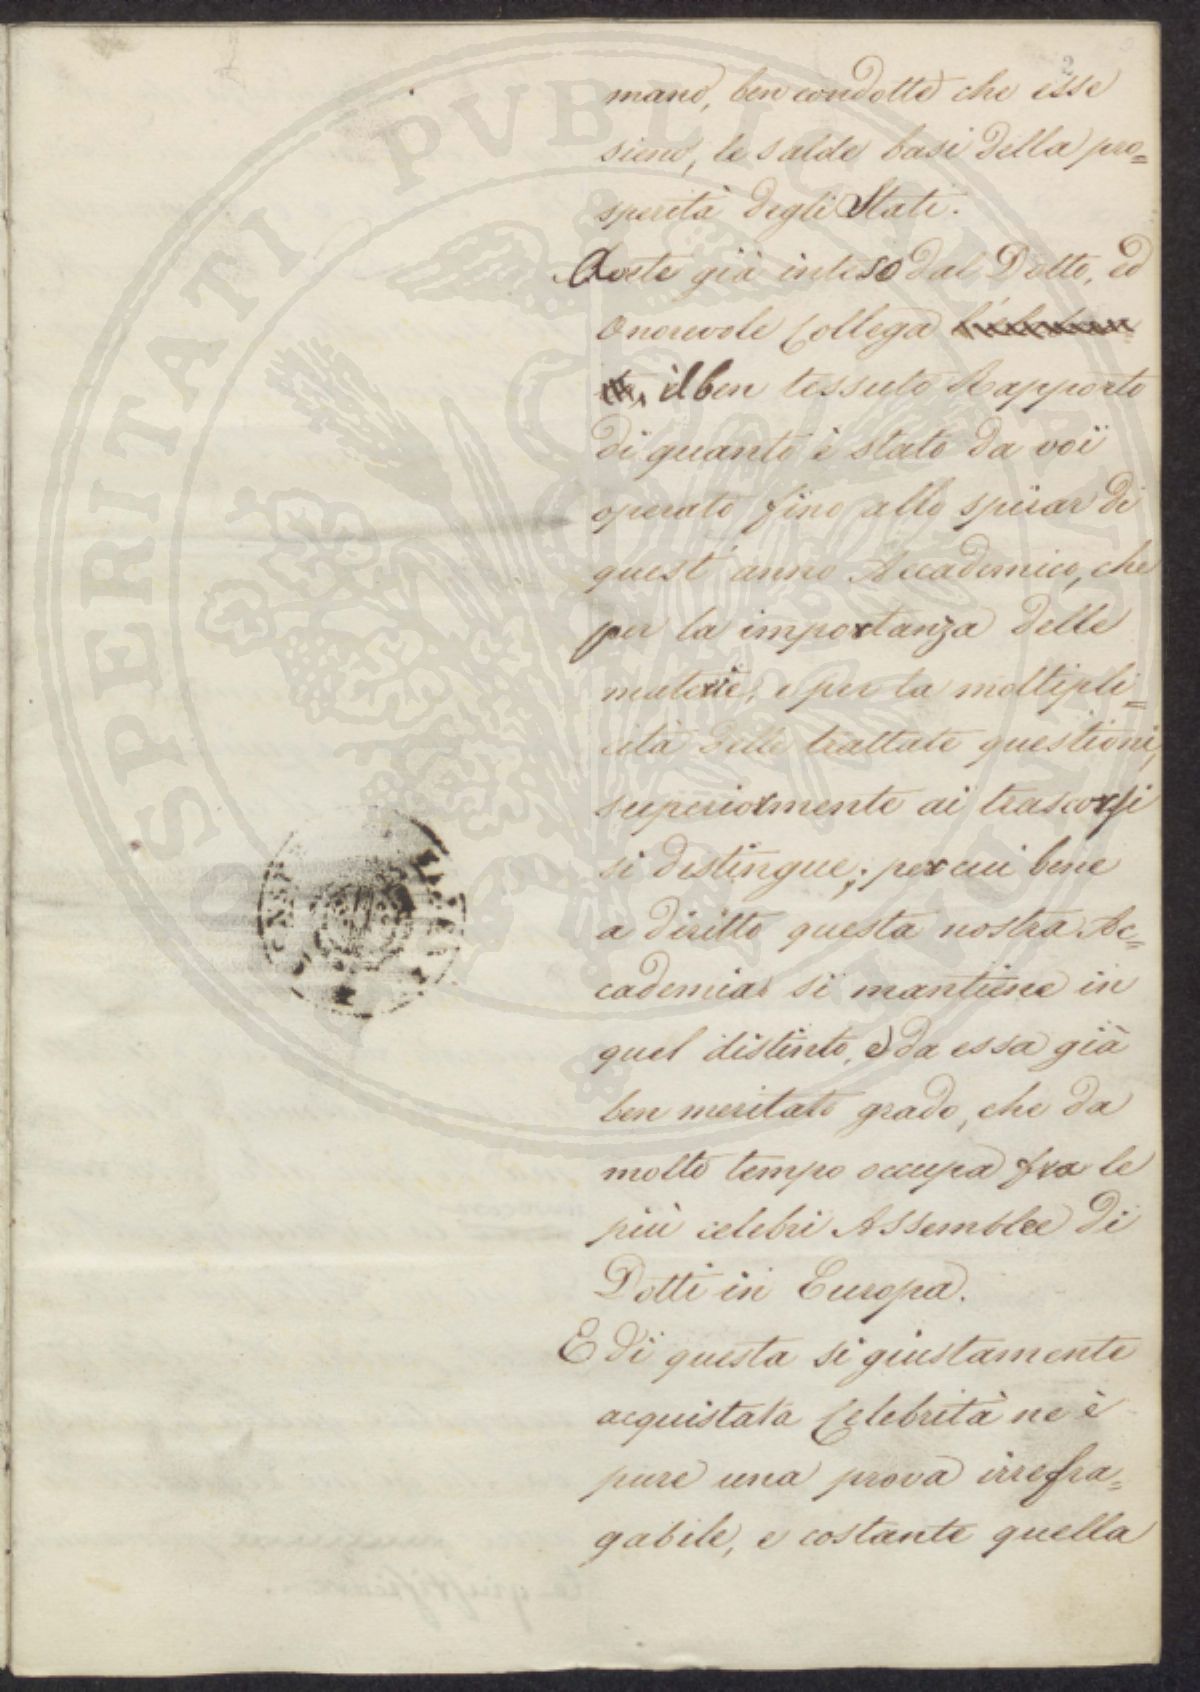 2
mano, ben condotte che esse
sieno, le salde basi della pro=
sperità degli Stati.
Aveste già inteso dal Dotto, ed
Onorevole Collega
il ben tessuto Rapporto
di quanto è stato da voi
operato fino allo spirar di
quest'anno Accademico, che
per la importanza delle
materie, e per la moltipli=
cità delle trattate questioni,
superiormente ai trascorsi
si distingue; per cui bene
a diritto questa nostra Ac=
cademia si mantiene in
quel distinto, e da essa già
ben meritato grado, che da
molto tempo occupa fra le
più celebri Assemblee di
Dotti in Europa.
E di questa si giustamente
acquistata Celebrità ne è
pure una prova irrefra=
gabile, e costante quella
PROSPERITATI PUBLICAE